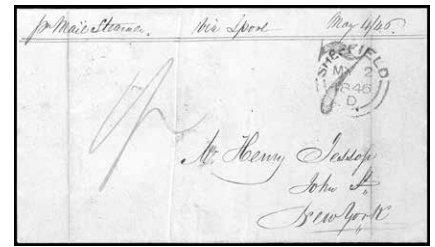 pr Mail Steamer. Via Lpool May 4/46.
SHEFFIELD
MY 2
1846
D
1/-
Mr. Henry Jessop
John St
New York